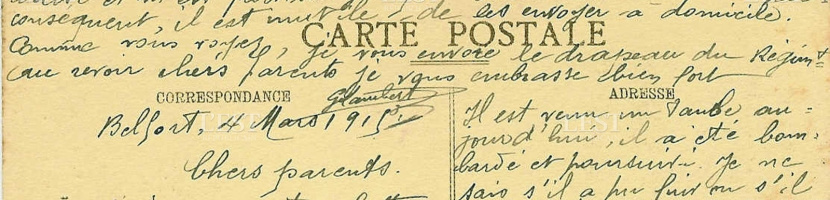 conséquent, il est inutile de les envoyer à domicile.
CARTE POSTALE
Comme vous voyez, je vous envoie le drapeau du Régimt
au revoir chers parents je vous embrasse bien fort
GLambert
CORRESPONDANCE
Belfort, 4 Mars 1915.
Chers parents.
ADRESSE
Il est venu un Taube au=
jourd'hui, il a été bom=
bardé et poursuivi. Je ne
sais s'il a pu fuir ou s'il